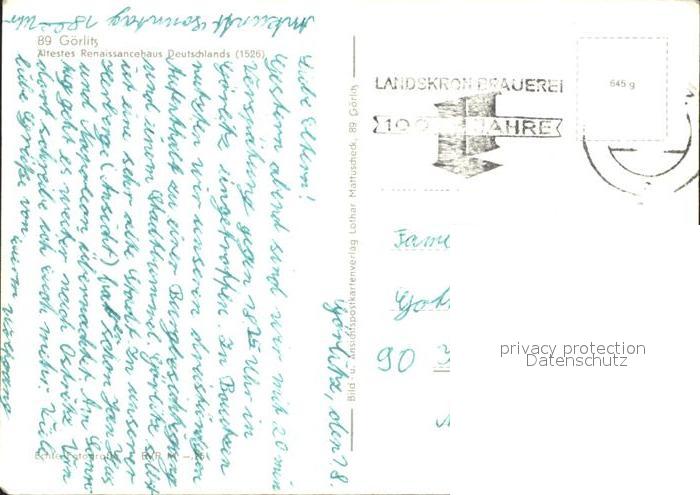 89 Görlitz
Ältestes Renaissancehaus Deutschlands (1526)
Ankunft Sonntag 18 Uhr
Görlitz, den 18.
Liebe Eltern!
Gestern abend sind wir mit 20 min
Verspätung gegen 18 Uhr in
Görlitz eingetroffen. In Bautzen
nutzten wir unseren dreistündigen
Aufenthalt zu einer Burgbesichtigung
und einem Stadtbummel. Görlitz selbst
ist eine sehr alte Stadt. In unserer
Herberge (Ansicht) hat schon Jan Hus
und Napoleon übernachtet. Am
geht es weiter nach Ostritz. Von
dort schreibe ich euch mehr. Viele
liebe Grüße von eurem
Echte Fotografie
Bild- u. Ansichtspostkartenverlag Lothar Mattuscheck, 89 Görlitz
LANDSKRON BRAUEREI
100 JAHRE
645 g
Fami
90
privacy protection
Datenschutz